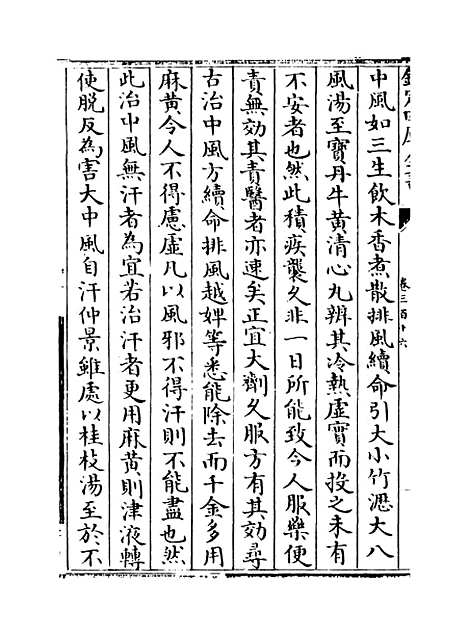 欽定四庫全書
卷三百十六
中風如三生飲木香煮散排風續命引大小竹瀝大八
風湯至寶丹牛黃清心丸辨其冷熱虛實而投之未有
不安者也然此積疾襲久非一日所能致今人服藥便
責無効其責醫者亦速矣正宜大劑久服方有其効尋
古治中風方續命排風越婢等悉能除去而千金多用
麻黃今人不得慮虛凡以風邪不得汗則不能盡也然
此治中風無汗者為宜若治汗者更用麻黃則津液轉
使脫反為害大中風自汗仲景雖處以桂枝湯至於不